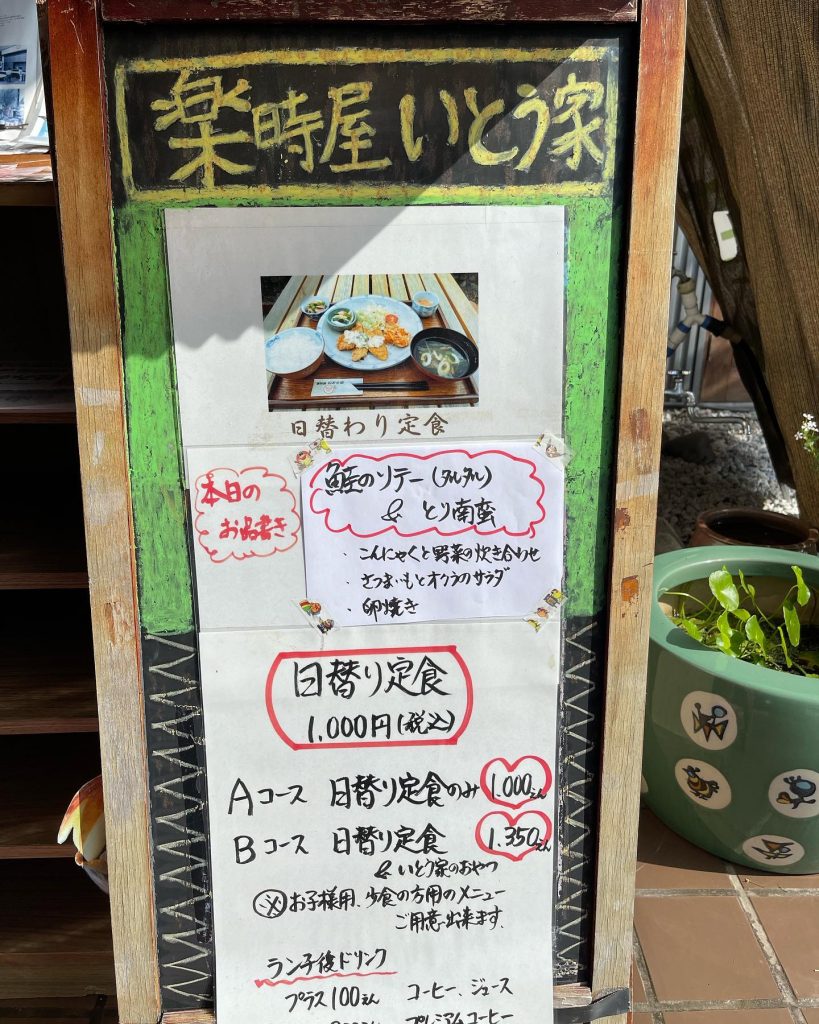 楽時屋 いとう家
日替わり定食
本日の
お品書き
鮭のソテー(タルタル)
& とり南蛮
・こんにゃくと野菜の炊き合わせ
・さつまいもとオクラのサラダ
・卵焼き
日替り定食
1,000円(税込)
Aコース 日替り定食のみ 1.000えん
Bコース 日替り定食 1.350えん
& いとう家のおやつ
お子様用、少食の方用のメニュー
ご用意出来ます。
ランチ後ドリンク
プラス100えん コーヒー、ジュース
プレミアムコーヒー